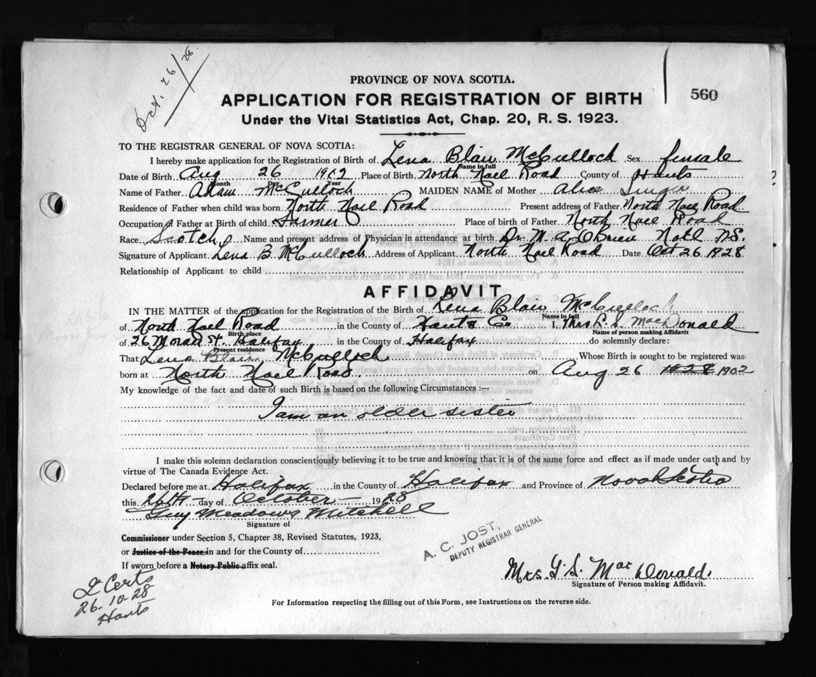 Oct. 26/28
PROVINCE OF NOVA SCOTIA.
560
APPLICATION FOR REGISTRATION OF BIRTH
Under the Vital Statistics Act, Chap. 20, R. S. 1923.
TO THE REGISTRAR GENERAL OF NOVA SCOTIA:
I hereby make application for the Registration of Birth of Lena Blair McCulloch Sex female
Name in full
Date of Birth Aug 26 1902 Place of Birth North Noel Road County of Hants
Month Year
Name of Father Adam McCulloch MAIDEN NAME of Mother
Residence of Father when child was born North Noel Road Present address of Father North Noel Road
Occupation of Father at Birth of child Farmer Place of birth of Father North Noel Road
Race Scotch Name and present address of Physician in attendance at birth Dr. M. A. O'Brien Noel N.S.
Signature of Applicant Lena B. McCulloch Address of Applicant North Noel Road Date Oct 26 1928
Relationship of Applicant to child
AFFIDAVIT
IN THE MATTER of the application for the Registration of the Birth of Lena Blair McCulloch
Name in full
of North Noel Road in the County of Hants Co I, Mrs. MacDonald
Birth place Name of person making Affidavit
of 26 St. Halifax in the County of Halifax do solemnly declare:
Present residence
That Lena Blair McCulloch Whose Birth is sought to be registered was
born at North Noel Road on Aug 26 1928 1902
My knowledge of the fact and date of such Birth is based on the following Circumstances :—
I am an older sister
I make this solemn declaration conscientiously believing it to be true and knowing that it is of the same force and effect as if made under oath and by
virtue of The Canada Evidence Act.
Declared before me at Halifax in the County of Halifax and Province of Nova Scotia
this 26th day of October 1928
Guy Meadows Mitchell
Signature of
Commissioner under Section 5, Chapter 38, Revised Statutes, 1923,
or Justice of the Peace in and for the County of
If sworn before a Notary Public affix seal.
A. C. JOST,
DEPUTY REGISTRAR GENERAL
Mrs. G. S. MacDonald.
Signature of Person making Affidavit.
2 Certs
26-10-28
Hants
For Information respecting the filling out of this Form, see Instructions on the reverse side.